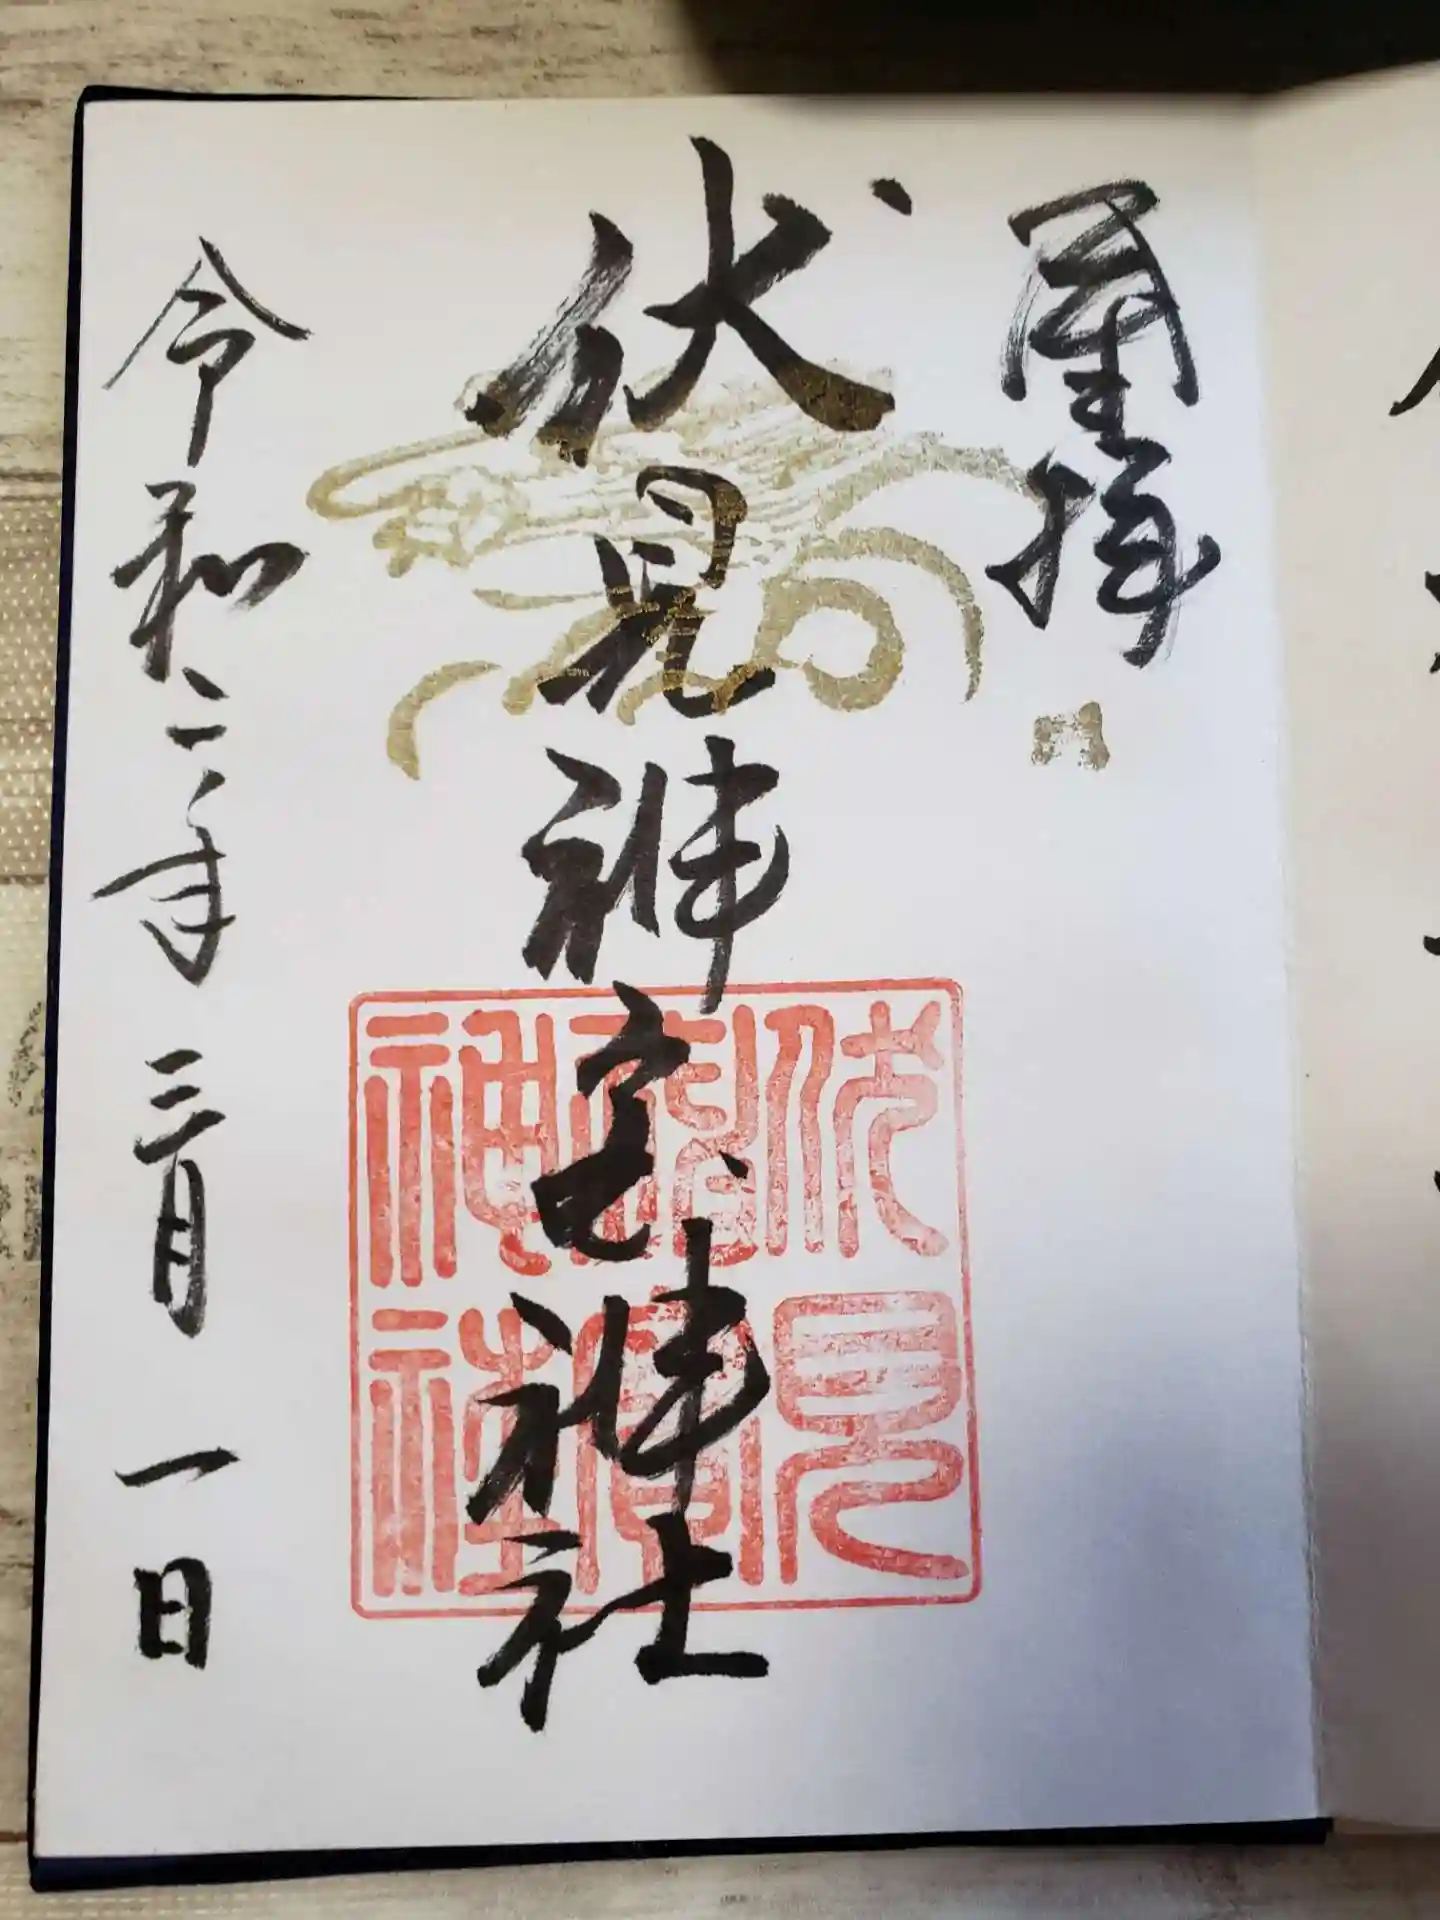 拝
伏見神宝神社
令和二年三月一日
伏見
神寶
神社